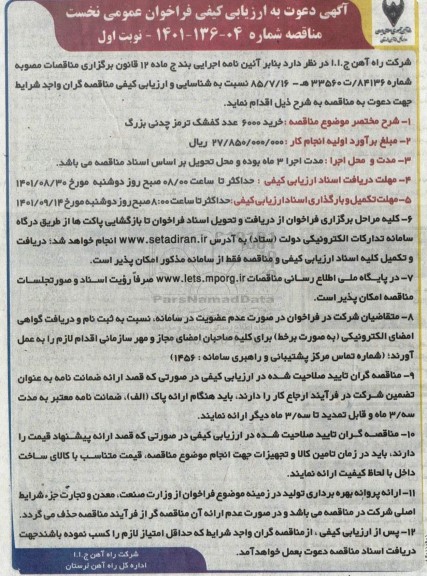 آگهی دعوت به ارزیابی کیفی فراخوان عمومی نخست
مناقصه شماره ۰۴-۱۳۶-۱۴۰۱ - نوبت اول
شرکت راه آهن ج.ا.ا در نظر دارد بنابر آئین نامه اجرایی بند ج ماده ۱۲ قانون برگزاری مناقصات مصوبه
شماره ۸۴۱۳۶/ت ۳۳۵۶۰ هـ - ۸۵/۷/۱۶ نسبت به شناسایی و ارزیابی کیفی مناقصه گران واجد شرایط
جهت دعوت به مناقصه به شرح ذیل اقدام نماید.
۱- شرح مختصر موضوع مناقصه :خرید ۶۰۰۰ عدد کفشک ترمز چدنی بزرگ
۲- مبلغ برآورد اولیه انجام کار : ۲۷/۸۵۰/۰۰۰/۰۰۰ ریال
۳- مدت و محل اجرا : مدت اجرا ۳ ماه بوده و محل تحویل بر اساس اسناد مناقصه می باشد.
۴- مهلت دریافت اسناد ارزیابی کیفی : حداکثر تا ساعت ۰۸/۰۰ صبح روز دوشنبه مورخ ۱۴۰۱/۰۸/۳۰
۵-مهلت تکمیل و بارگذاری اسناد ارزیابی کیفی:حداکثر تا ساعت ۸:۰۰ صبح روز دوشنبه مورخ ۱۴۰۱/۰۹/۱۴
۶- کلیه مراحل برگزاری فراخوان از دریافت و تحویل اسناد فراخوان تا بازگشایی پاکت ها از طریق درگاه
سامانه تدارکات الکترونیکی دولت (ستاد) به آدرس www.setadiran.ir انجام خواهد شد؛ دریافت
و تکمیل کلیه اسناد ارزیابی کیفی و مناقصه فقط از سامانه مذکور امکان پذیر است.
۷- در پایگاه ملی اطلاع رسانی مناقصات www.iets.mporg.ir صرفاً رؤیت اسناد و صورتجلسات
مناقصه امکان پذیر است.
۸- متقاضیان شرکت در فراخوان در صورت عدم عضویت در سامانه، نسبت به ثبت نام و دریافت گواهی
امضای الکترونیکی (به صورت برخط) برای کلیه صاحبان امضای مجاز و مهر سازمانی اقدام لازم را به عمل
آورند؛ (شماره تماس مرکز پشتیبانی و راهبری سامانه : ۱۴۵۶)
۹- مناقصه گران تایید صلاحیت شده در ارزیابی کیفی در صورتی که قصد ارائه ضمانت نامه به عنوان
تضمین شرکت در فرآیند ارجاع کار را دارند، باید هنگام ارائه پاک (الف)، ضمانت نامه معتبر به مدت
سه/۳ ماه و قابل تمدید تا سه/۳ ماه دیگر ارائه نمایند.
۱۰- مناقصه گران تایید صلاحیت شده در ارزیابی کیفی در صورتی که قصد ارائه پیشنهاد قیمت را
دارند، باید در زمان تامین کالا و تجهیزات جهت انجام موضوع مناقصه، قیمت متناسب با کالای ساخت
داخل با لحاظ کیفیت ارائه نمایند.
۱۱- ارائه پروانه بهره برداری تولید در زمینه موضوع فراخوان از وزارت صنعت، معدن و تجارت جزء شرایط
اصلی شرکت در مناقصه می باشد و در صورت عدم ارائه آن مناقصه گر از فرآیند مناقصه حذف می گردد.
۱۲- پس از ارزیابی کیفی ، از مناقصه گران واجد شرایط که حداقل امتیاز لازم را کسب نموده باشند جهت
دریافت اسناد مناقصه دعوت بعمل خواهد آمد.
شرکت راه آهن ج.ا.ا
اداره کل راه آهن لرستان
ParsNamadData